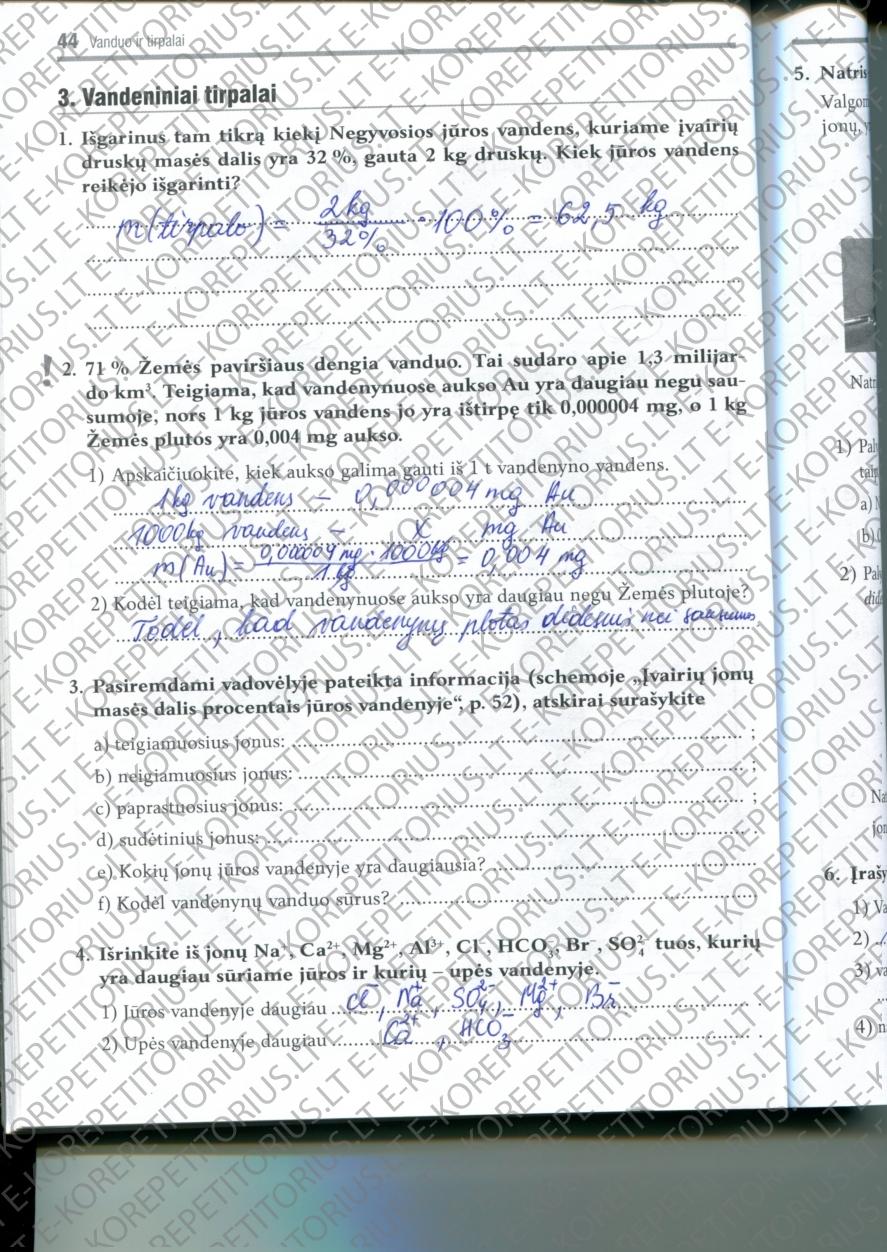 44 Vanduo ir tirpalai
3. Vandeniniai tirpalai
1. Išgarinus tam tikrą kiekį Negyvosios jūros vandens, kuriame įvairių
druskų masės dalis yra 32 %, gauta 2 kg druskų. Kiek jūros vandens
reikėjo išgarinti?
m(tirpalo) = 2 kg / 32% · 100% = 62,5 kg
! 2. 71 % Žemės paviršiaus dengia vanduo. Tai sudaro apie 1,3 milijar-
do km³. Teigiama, kad vandenynuose aukso Au yra daugiau negu sau-
sumoje, nors 1 kg jūros vandens jo yra ištirpę tik 0,000004 mg, o 1 kg
Žemės plutos yra 0,004 mg aukso.
1) Apskaičiuokite, kiek aukso galima gauti iš 1 t vandenyno vandens.
1kg vandens – 0,000004 mg Au
1000kg vandens – X mg Au
m(Au) = 0,000004 mg · 1000kg / 1 kg = 0,004 mg
2) Kodėl teigiama, kad vandenynuose aukso yra daugiau negu Žemės plutoje?
Todėl, kad vandenynų plotas didesnis nei sausumos
3. Pasiremdami vadovėlyje pateikta informacija (schemoje „Įvairių jonų
masės dalis procentais jūros vandenyje“, p. 52), atskirai surašykite
a) teigiamuosius jonus: ;
b) neigiamuosius jonus: ;
c) paprastuosius jonus: ;
d) sudėtinius jonus:
e) Kokių jonų jūros vandenyje yra daugiausia?
f) Kodėl vandenynų vanduo sūrus?
4. Išrinkite iš jonų Na⁺, Ca²⁺, Mg²⁺, Al³⁺, Cl⁻, HCO₃⁻, Br⁻, SO₄²⁻ tuos, kurių
yra daugiau sūriame jūros ir kurių – upės vandenyje.
1) Jūros vandenyje daugiau Cl⁻, Na⁺, SO₄²⁻, Mg²⁺, Br⁻ .
2) Upės vandenyje daugiau Ca²⁺, HCO₃⁻ .
5. Natris
Valgom
jonų, y
Natr
1) Pal
taip
a)
(b)
2) Pal
did
Na
jon
6. Įrašy
1) Va
2)
3) va
4) n
E-KOREPETITORIUS.LT